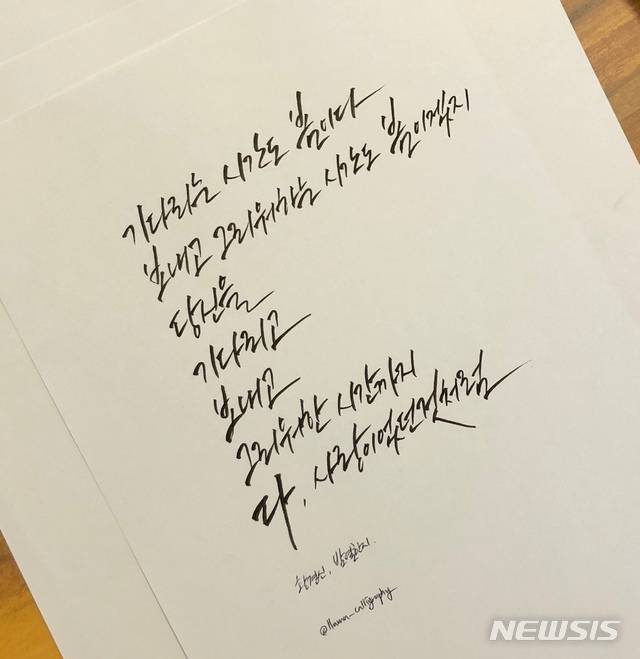 기다리는 시간도 봄이다
보내고 그리워하는 시간도 봄이겠지
당신을
기다리고
보내고
그리워한 시간까지
다, 사랑이었던것처럼
황경신, 밤 열한시.
@llama_calligraphy
NEWSIS